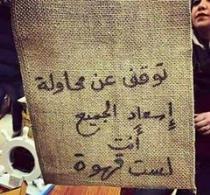 توقفى عن محاولة
إسعاد الجميع
أنت
لست قهوة